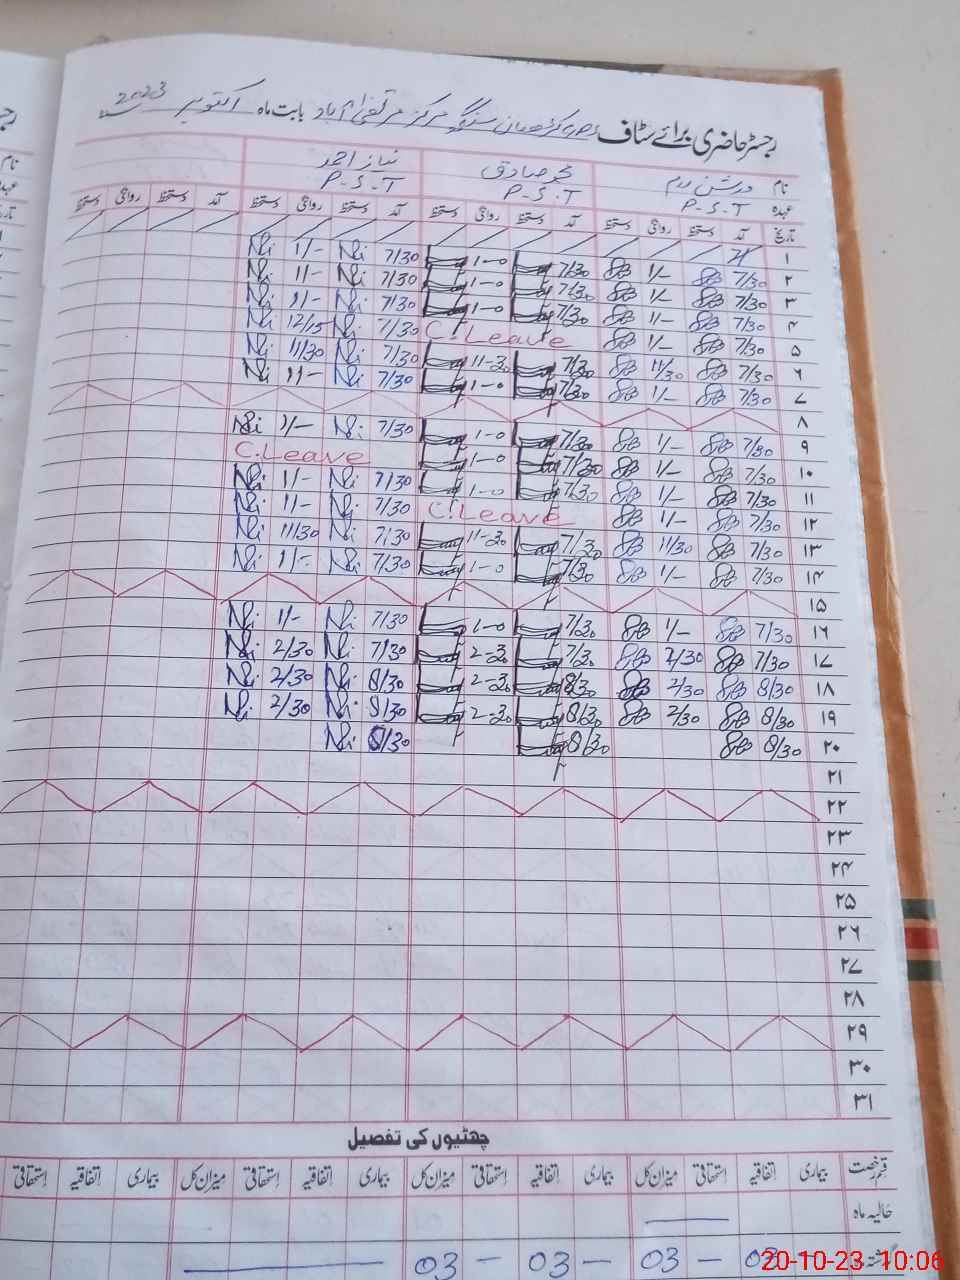 رجسٹر حاضری برائے سٹاف مرکز مرتضیٰ آباد بابت ماہ اکتوبر 2023
نام درشن رم محمد صادق نیاز احمد
عہدہ P-S-T P-S-T P-S-T
تاریخ آمد دستخط روانگی دستخط آمد دستخط روانگی دستخط آمد دستخط روانگی دستخط آمد دستخط روانگی دستخط
۱
۲ 7/30 1/- 7/30 1-0 7/30 Ni 1/- Ni
۳ 7/30 1/- 7/30 1-0 7/30 Ni 1/- Ni
۴ 7/30 1/- 7/30 1-0 7/30 Ni 1/- Ni
۵ 7/30 1/- C.Leave 7/30 Ni 12/15 Ni
۶ 7/30 11/30 7/30 11-30 7/30 Ni 11/30 Ni
۷ 7/30 1/- 7/30 1-0 7/30 Ni 1/- Ni
۸
۹ 7/30 1/- 7/30 1-0 7/30 Ni 1/- Ni
۱۰ 7/30 1/- 7/30 1-0 C.Leave
۱۱ 7/30 1/- 7/30 1-0 7/30 Ni 1/- Ni
۱۲ 7/30 1/- C.Leave 7/30 Ni 1/- Ni
۱۳ 7/30 11/30 7/30 11-30 7/30 Ni 11/30 Ni
۱۴ 7/30 1/- 7/30 1-0 7/30 Ni 1/- Ni
۱۵
۱۶ 7/30 1/- 7/30 1-0 7/30 Ni 1/- Ni
۱۷ 7/30 2/30 7/30 2-30 7/30 Ni 2/30 Ni
۱۸ 8/30 2/30 8/30 2-30 8/30 Ni 2/30 Ni
۱۹ 8/30 2/30 8/30 2-30 8/30 Ni 2/30 Ni
۲۰ 8/30 8/30 8/30 Ni
۲۱
۲۲
۲۳
۲۴
۲۵
۲۶
۲۷
۲۸
۲۹
۳۰
۳۱
چھٹیوں کی تفصیل
قسم رخصت بیماری اتفاقیہ استحقاقی میزان کل بیماری اتفاقیہ استحقاقی میزان کل بیماری اتفاقیہ استحقاقی میزان کل بیماری اتفاقیہ استحقاقی
حالیہ ماہ
03 – 03 – 03 – 03
20-10-23 10:06